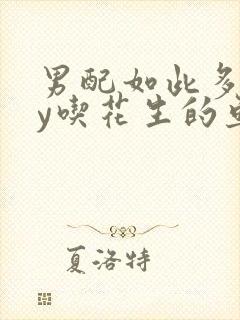 男配如此多
y喫花生的
夏洛特